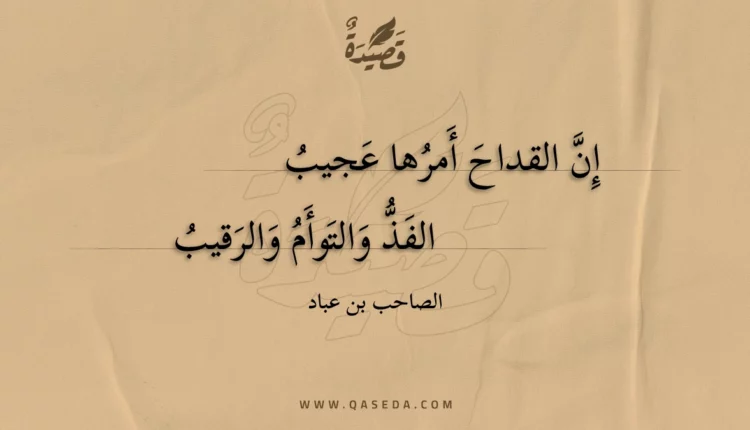 قَصِيدَةٌ
إِنَّ القداحَ أَمرُها عَجيبُ
الفَذُّ وَالتَوأَمُ وَالرَقيبُ
الصاحب بن عباد
WWW.QASEDA.COM